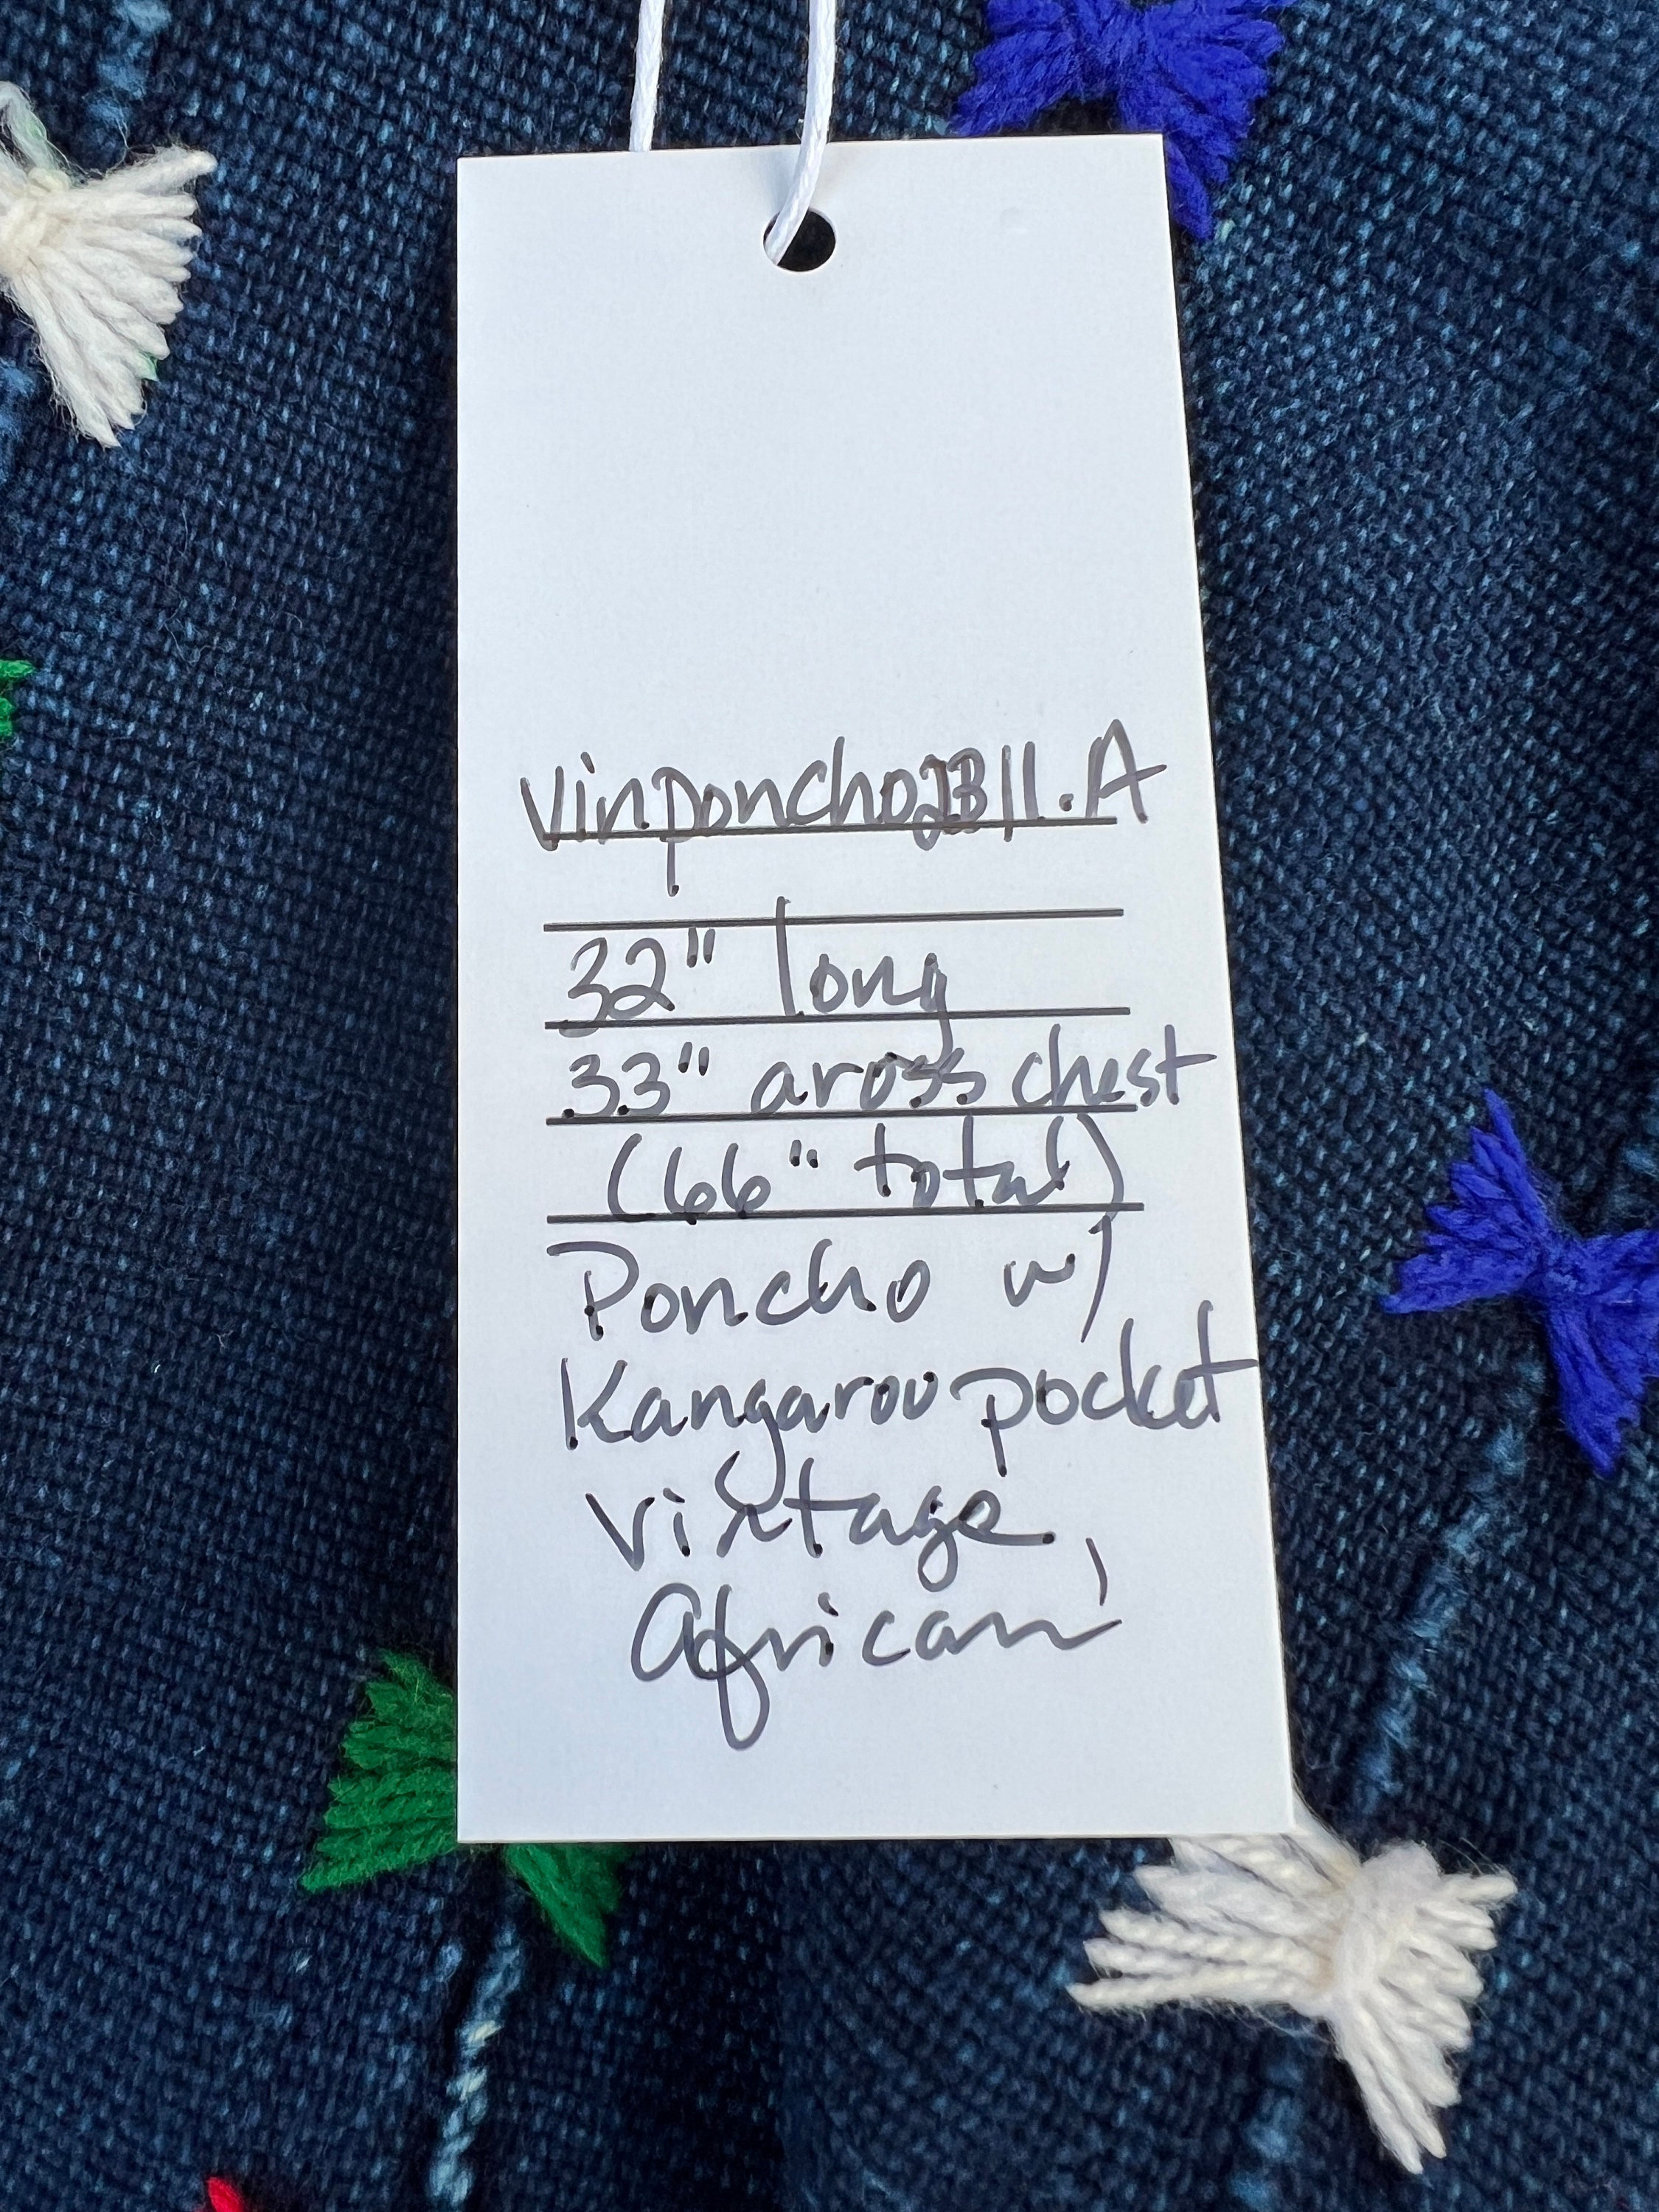 vinponcho2311.A
32" long
33" aross chest
(66" total)
Poncho w/
Kangaroo pocket
vintage
African